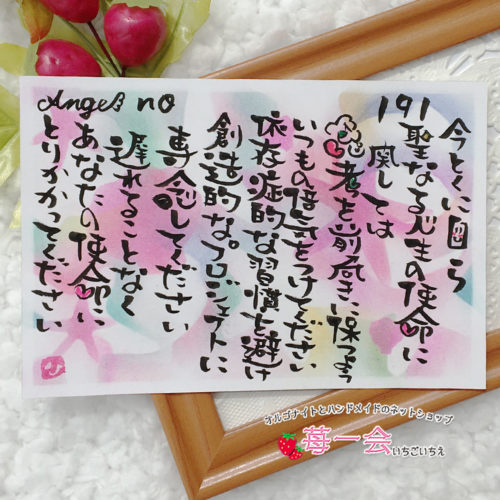 Angel no 191
今とくに自ら
聖なる人生の使命に
関しては
思考を前向きに保つよう
いつもの倍気をつけてください
依存症的な習慣を避け
創造的なプロジェクトに
専念してください
遅れることなく
あなたの使命に
とりかかってください
オルゴナイトとハンドメイドのネットショップ
苺一会 いちごいちえ